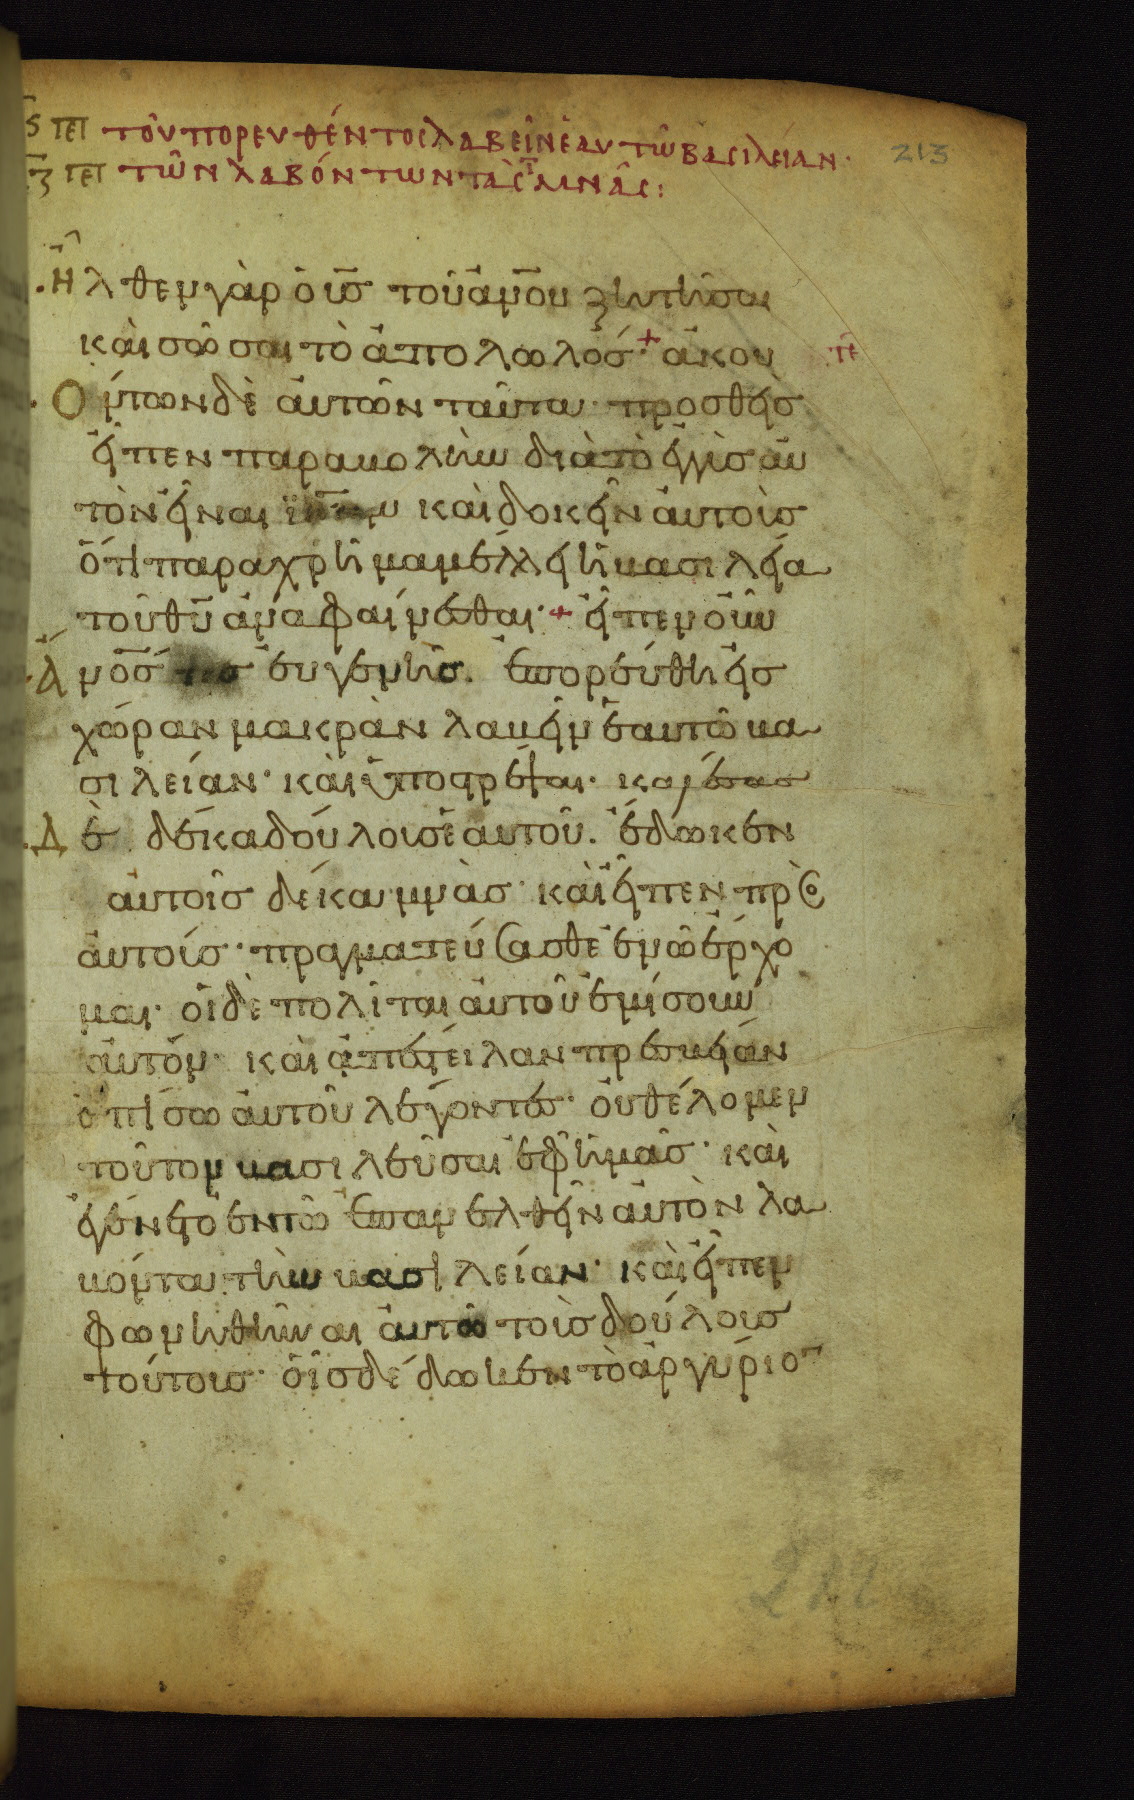 ξϛ πε̣ρ̣ὶ τοῦ πορευθέντος λαβεῖν ἑαυτῶ βασιλείαν· 213
ξζ περὶ τῶν λαβόντων τὰς ῑ μνᾶς:
Ἦλθεν γὰρ ὁ υ̅ς̅ τοῦ α̅ν̅ο̅υ̅ ζητῆσαι
καὶ σῶσαι τὸ ἀπολωλός·+ ἀκου
όντων δὲ αὐτῶν ταῦτα· προσθεὶς
εἶπεν παραβολὴν διὰ τὸ ἐγγὺς αὐ
τὸν εἶναι ι̅λ̅η̅μ̅ καὶ δοκεῖν αὐτοὺς
ὅτι παραχρῆμα μέλλει ἡ βασιλεία
τοῦ θ̅υ̅ ἀναφαίνεσθαι·+ εἶπεν οὖν
α̅ν̅ο̅ς̅ τις εὐγενής. ἐπορεύθη εἰς
χώραν μακρὰν λαβεῖν ἑαυτῶ βα
σιλείαν· καὶ ὑποστρέψαι· καλέσας
δὲ δέκα δούλους ἑαυτοῦ. ἔδωκεν
αὐτοῖς δέκα μνὰς· καὶ εἶπεν πρὸς
αὐτούς· πραγματεύσασθε ἐν ῶ ἔρχο
μαι· οἱ δὲ πολῖται αὐτοῦ ἐμίσουν
αὐτόν· καὶ ἀπέστειλαν πρεσβείαν
ὀπίσω αὐτοῦ λέγοντες· οὐ θέλομεν
τοῦτον βασιλεῦσαι ἐφ ἡμᾶς· καὶ
ἐγένετο ἐν τῶ ἐπανελθεῖν αὐτὸν λα
βόντα τὴν βασιλείαν· καὶ εἶπεν
φωνηθῆναι αὐτῶ τοὺς δούλους
τούτους· οἷς δέδωκεν τὸ ἀργύριον
212